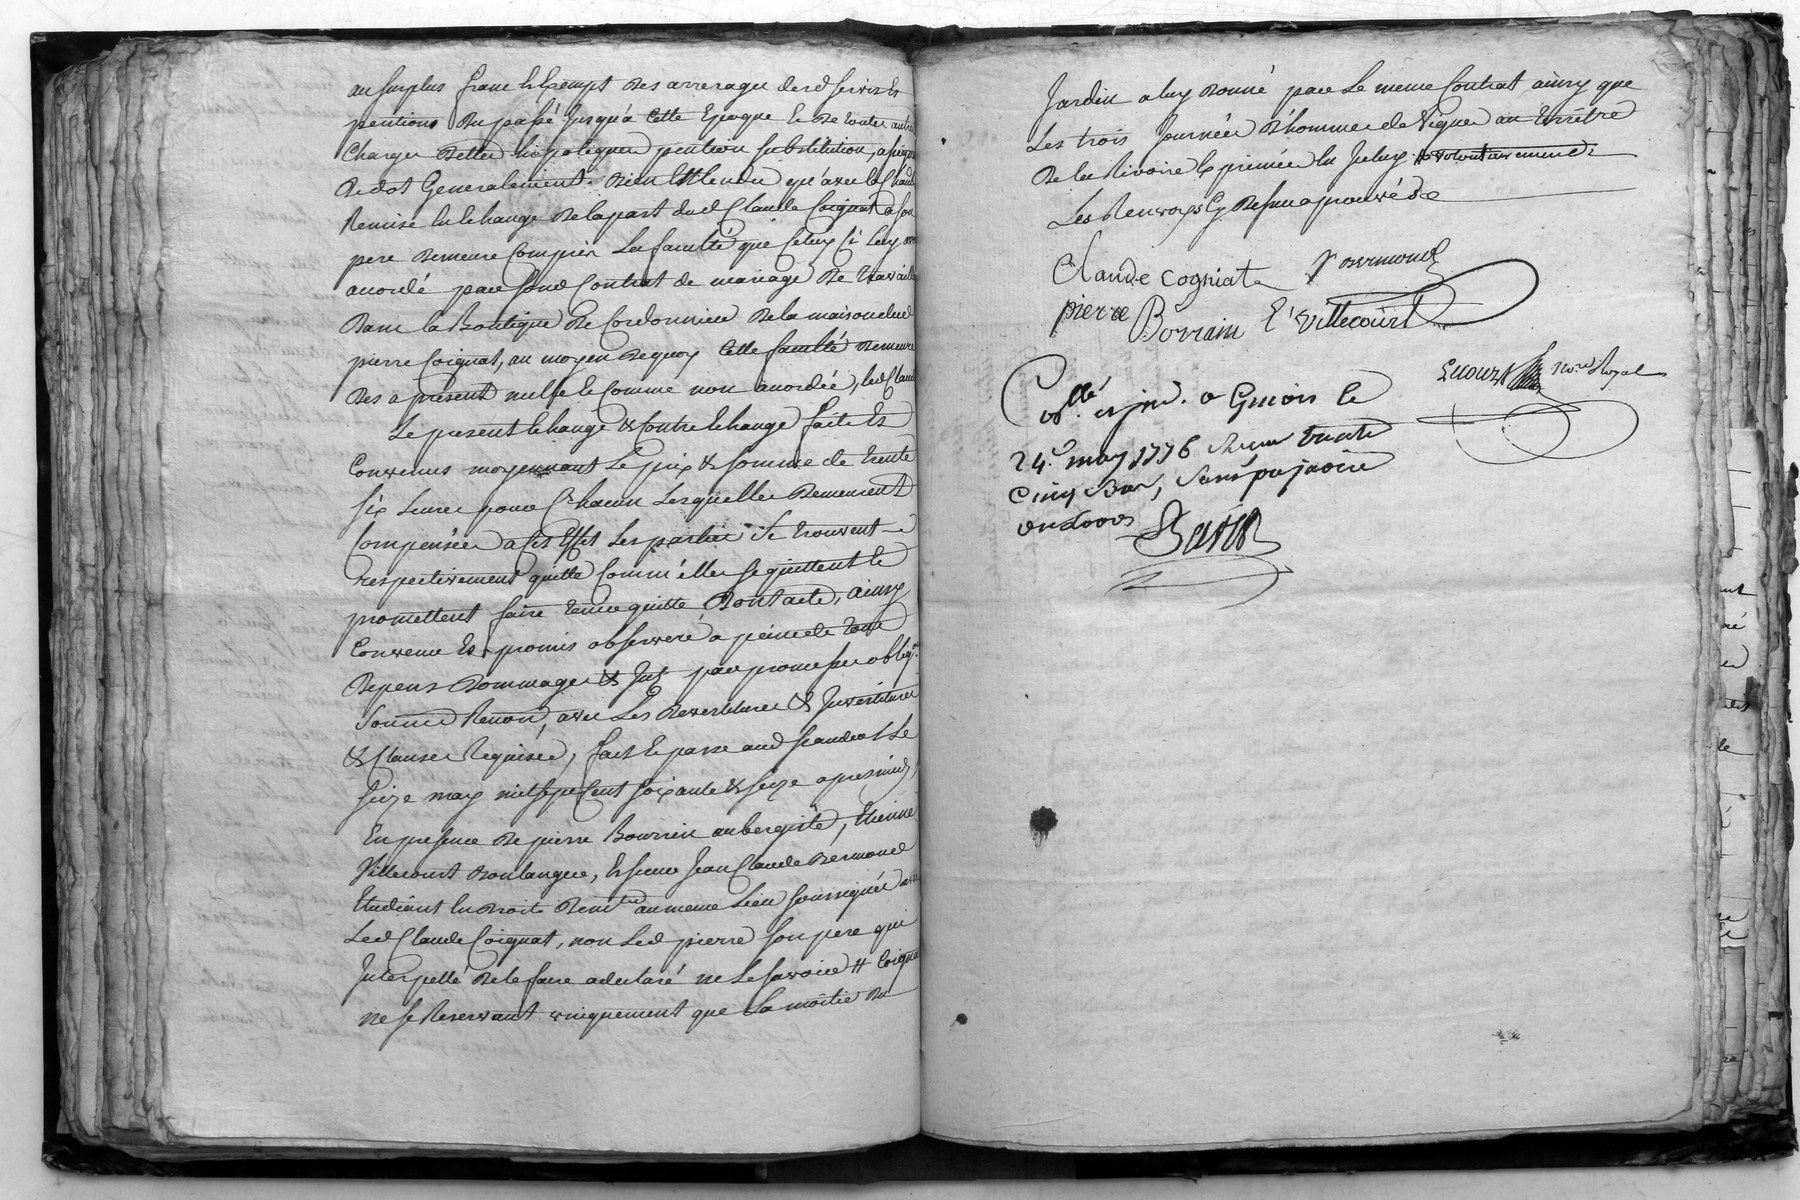 au surplus franc & Exempt des arrerages desd servis &
pentions du passé Jusqu'à Cette Epoque & de toutes autres
Charges dettes hipoteques pention substitution,
de dot Generalement. Bien Entendu qu'avec la
Remise En Echange de la part dud Claude Coignat a son
pere demeure Comprise La faculté que Celuy Ci Luy
acordé par sond Contrat de mariage de travailler
dans la Boutique de Cordonnier de la maison dud
pierre Coignat, au moyen de quoy Cette faculté demeure
des a présent nulle & Comme non acordée, led Claude
Le present Echange & Contre Echange faits &
Convenus moyennant Le prix & somme de trente
six Livres pour Chacun Lesquelles demeurent
Compensées a Cet Effet Les parties s'En trouvent
respectivement quitte Comm'elles se quittent &
promettent faire tenir quitte Dont acte, ainsy
Convenu & promis observer a peine de tous
depens dommages & Int par promesses oblig.on
soumis Renon, avec Les Devestitures & Investitures
& Clauses Requises, fait & passé aud Le
seize may mil sept Cent soixante & seize apres midy,
En presence de pierre Bourrin aubergiste, Etienne
Villecourt Boulanger, & sieur Jean Claude Bermond
Etudiant En droits au meme Lieu soussignés avec
Led Claude Coignat, non Led pierre son pere qui
Interpellé de le faire a declaré ne Le savoir # Coignat
ne se Reservant uniquement que La moitié du
Jardin a luy donné par Le meme Contrat ainsy que
Les trois Journées d'hommes de Vigne au territre
de la Rivoire Exprimée En Iceluy
Les Renvoys Cy dessus aprouvés &c
Claude cogniat Bermond
pierre Borrain E Villecourt
not.re Royal
Collé a le
24.e may 1776 Reçu trente
Cinq